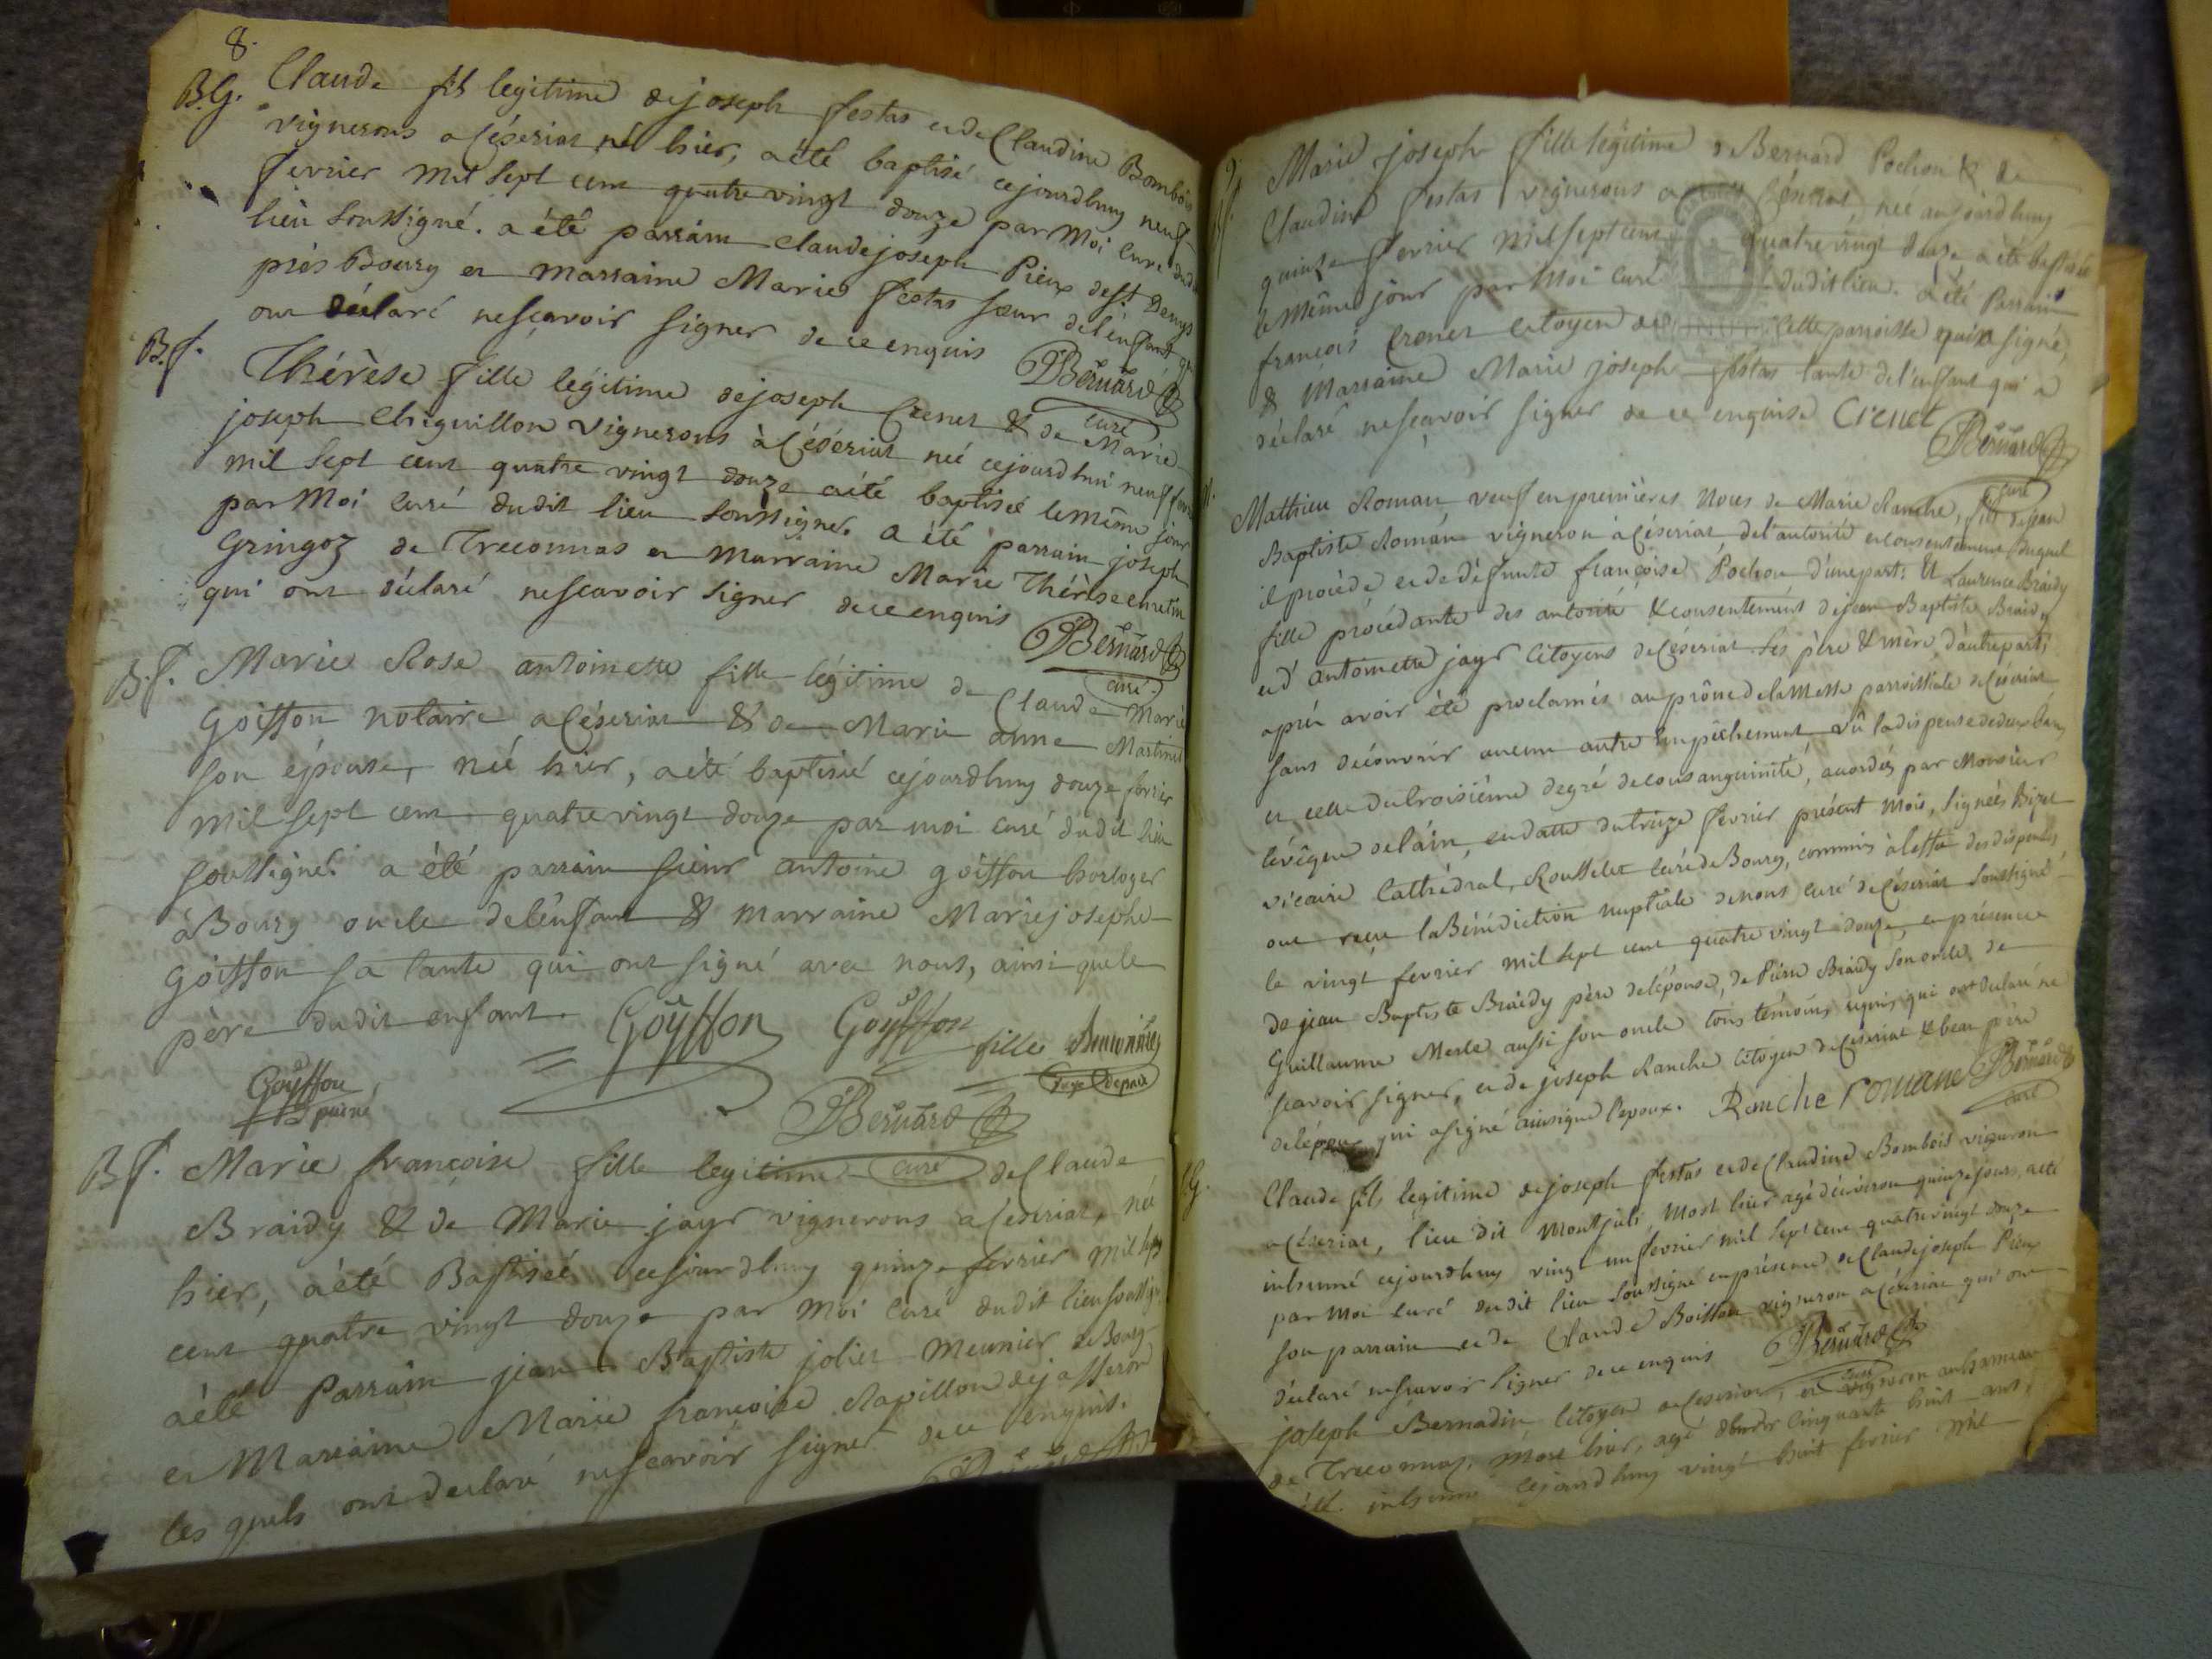 8.
B.G. Claude fils legitime de joseph festas et de Claudine Bombois
vignerons a Céseriat né hier, a été baptisé cejourdhuy neuf
fevrier mil sept cent quatre vingt douze par Moi curé dudit
lieu soussigné. a été parrain Claude joseph Pieux de st Denys
près Bourg et marraine Marie festas sœur de l'enfant qui
ont déclaré ne scavoir signer de ce enquis Bernard
curé
B.f. Thérèse fille legitime de joseph Crenet & de Marie
joseph Chiguillon vignerons à Céseriat née cejourdhui neuf fevrier
mil sept cent quatre vingt douze a été baptisée le même jour
par Moi curé dudit lieu soussigné. a été parrain joseph
Gringoz de Treconnas et Marraine Marie Thérèse
qui ont déclaré ne scavoir signer de ce enquis
Bernard
curé
B.f. Marie Rose antoinette fille légitime de Claude Marie
Goiffon notaire a Céseriat & de Marie anne Martinet
son épouse, née hier, a été baptisée cejourdhuy douze fevrier
mil sept cent quatre vingt douze par moi curé dudit lieu
soussigné. a été parrain sieur antoine goiffon horloger
à Bourg oncle de l'enfant & marraine Marie josephe
goiffon sa tante qui ont signé avec nous, ainsi que le
père dudit enfant. Goÿffon Goÿffon fille
Goÿffon puiné juge de paix
Bernard
curé
B f. Marie francoise fille legitime de Claude
Braidy & de Marie jayr vignerons a Ceseriat, née
hier, a été Baptisée cejourdhuy quinze fevrier mil sept
cent quatre vingt douze par Moi curé dudit lieu soussigné
a été Parrain jean Baptiste joliet Meunier de Bourg
et Marraine Marie francoise Ravillon de jasseron
les quels ont déclaré ne scavoir signer de ce enquis.
9.
Marie joseph fille légitime de Bernard Pochon & de
Claudine festas vignerons a Céseriat, née aujourdhuy
quinze fevrier mil sept cent quatre vingt douze a été baptisée
le même jour par Moi curé dudit lieu. a été Parrain
francois Crenet citoyen de cette parroisse qui a signé,
& Marraine Marie joseph festas tante de l'enfant qui a
déclaré ne scavoir signer de ce enquise Crenet
Bernard
curé
Matthieu Roman veuf en premières Noces de Marie Ranche, fils de jean
Baptiste Román vigneron à Céseriat de l'autorité et consentement duquel
il procède et de défunte françoise Pochon d'une part; Et Laurence Braidy
fille procédante des autorité & consentement de jean Baptiste Braidy
et d'antoinette jayr citoyens de Céseriat ses père & mère d'autre part;
après avoir été proclamés au prône de la Messe parroissiale de Céseriat
sans découvrir aucun autre Empêchement vû la dispense de deux bans
et celle du troisième degré de consanguinité, accordées par Monsieur
l'évêque de l'ain, en datte du treize fevrier présent mois, signées Bizet
vicaire Cathédral, Rousselet curé de Bourg, commis à l'effet des dispenses,
ont reçu la Bénédiction nuptiale de nous curé de Céseriat soussigné
le vingt fevrier mil sept cent quatre vingt douze, en présence
de jean Baptiste Braidy père de l'épouse, de Pierre Braidy son oncle, de
Guillaume Merle aussi son oncle tous témoins requis, qui ont déclaré ne
scavoir signer, et de joseph Ranche citoyen de Céseriat & beau père
de l'époux qui a signé ainsi que l'epoux. Ranche romane Bernard
curé
Claude fils legitime de joseph festas et de Claudine Bombois vigneron
a Céseriat, lieu dit Montjuli, Mort hier agé d'environ quinze jours, a été
inhumé cejourdhuy vingt un fevrier mil sept cent quatre vingt douze
par Moi curé dudit lieu soussigné en présence de Claude joseph Pieux
son parrain et de Claude Boisson vigneron a Céseriat qui ont
déclaré ne scavoir signer de ce enquis Bernard
curé
joseph Bernadin citoyen a Ceseriat, et vigneron au hameau
de Treconnaz, mort hier, agé cinquante huit ans,
inhumé cejourdhuy vingt huit fevrier mil